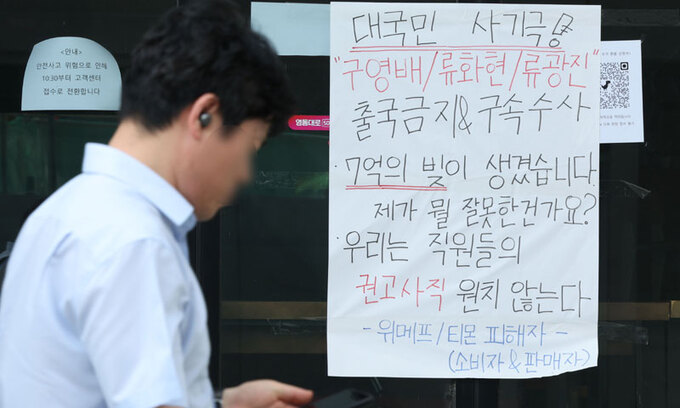 <안내>
안전사고 위험으로 인해
10:30부터 고객센터
접수로 전환합니다
영동대로
대국민 사기극!
"구영배/류화현/류광진"
출국금지&구속수사
· 7억의 빚이 생겼습니다.
제가 뭘 잘못한건가요?
· 우리는 직원들의
권고사직 원치 않는다
- 위메프/티몬 피해자 -
(소비자&판매자)